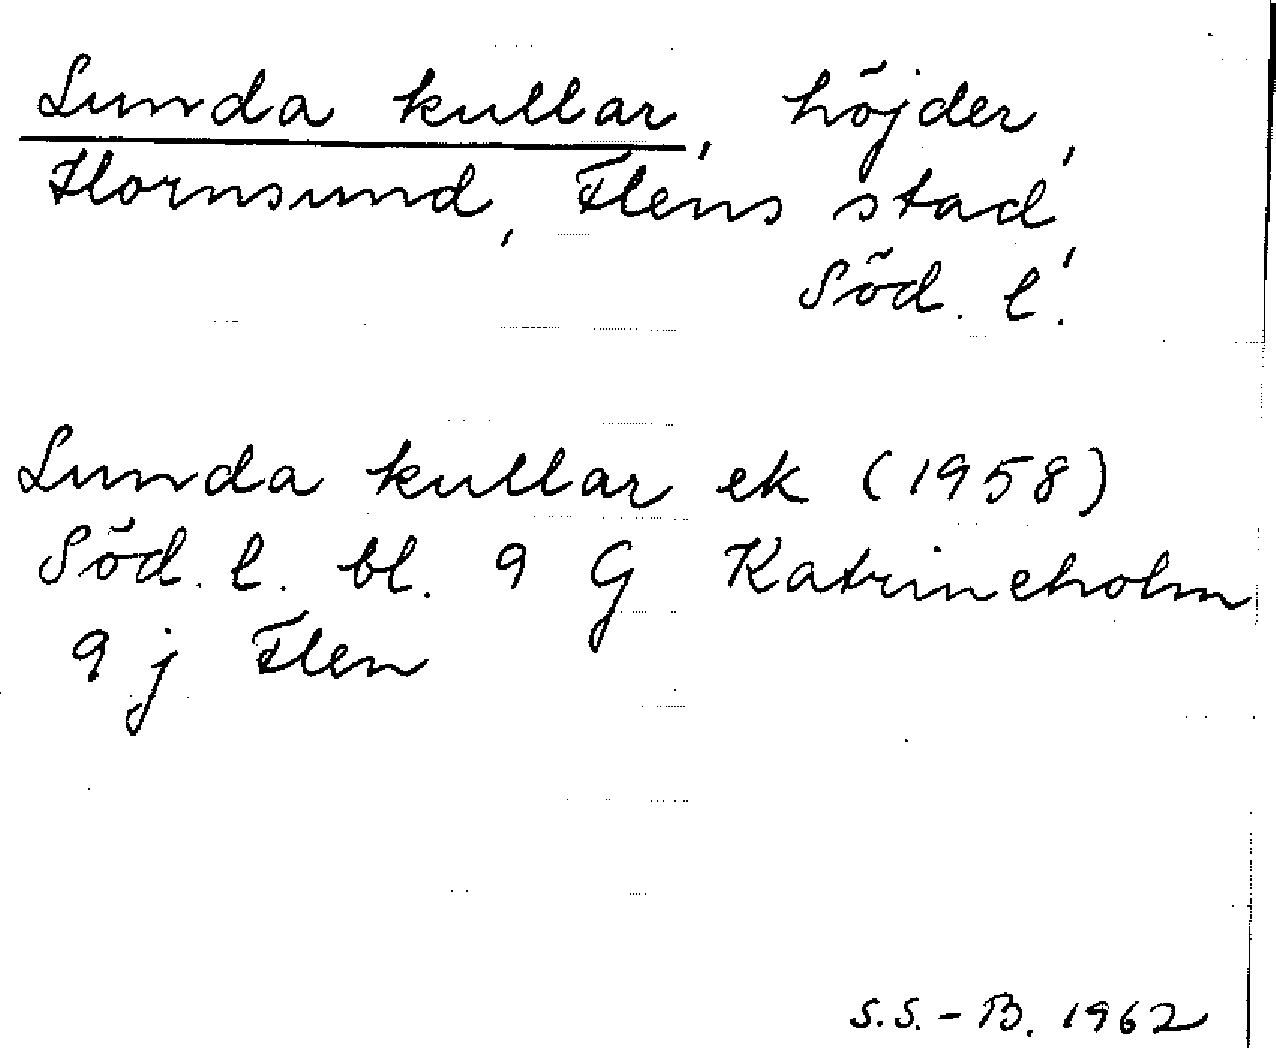 Lunda kullar, höjder,
Hornsund, Flens stad,
Söd. l.
Lunda kullar ek (1958)
Söd. l. bl. 9 G Katrineholm
9 j Flen
S.S.-B. 1962